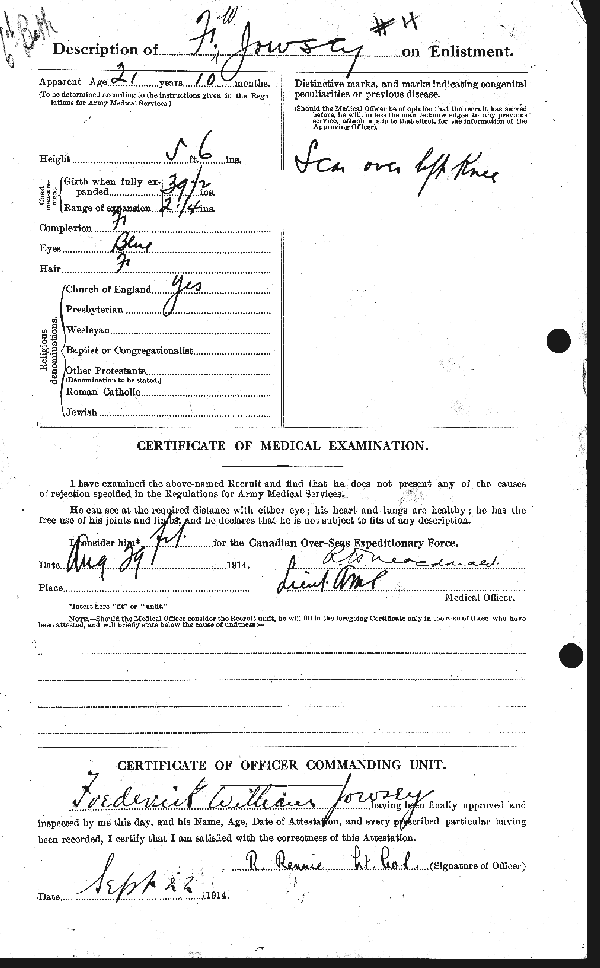 # 4
Description of F. W. Jowsey on Enlistment.
Apparent Age 21 years 10 months.
(To be determined according to the instructions given in the Regulations for Army Medical Services.)
Height 5 ft. 6 ins.
Chest measurement.
Girth when fully expanded 39 1/2 ins.
Range of expansion 2 1/4 ins.
Complexion F
Eyes Blue
Hair F
Religious denominations.
Church of England Yes
Presbyterian
Wesleyan
Baptist or Congregationalist
Other Protestants
(Denomination to be stated.)
Roman Catholic
Jewish
Distinctive marks, and marks indicating congenital
peculiarities or previous disease.
(Should the Medical Officer be of opinion that the recruit has served
before, he will, unless the man acknowledges to any previous
service, attach a slip to that effect, for the information of the
Approving Officer).
Scar over left Knee
CERTIFICATE OF MEDICAL EXAMINATION.
I have examined the above-named Recruit and find that he does not present any of the causes
of rejection specified in the Regulations for Army Medical Services.
He can see at the required distance with either eye; his heart and lungs are healthy; he has the
free use of his joints and limbs, and he declares that he is not subject to fits of any description.
I consider him* fit for the Canadian Over-Seas Expeditionary Force.
Date Aug 29 1914.
Macdonald
Place
Lieut AMC
Medical Officer.
*Insert here "fit" or "unfit."
NOTE.—Should the Medical Officer consider the Recruit unfit, he will fill in the foregoing Certificate only in the case of those who have
been attested, and will briefly state below the cause of unfitness:—
CERTIFICATE OF OFFICER COMMANDING UNIT.
Frederick William Jowsey having been finally approved and
inspected by me this day, and his Name, Age, Date of Attestation, and every prescribed particular having
been recorded, I certify that I am satisfied with the correctness of this Attestation.
R. Rennie Lt. Col. (Signature of Officer)
Date Sept 22 1914.